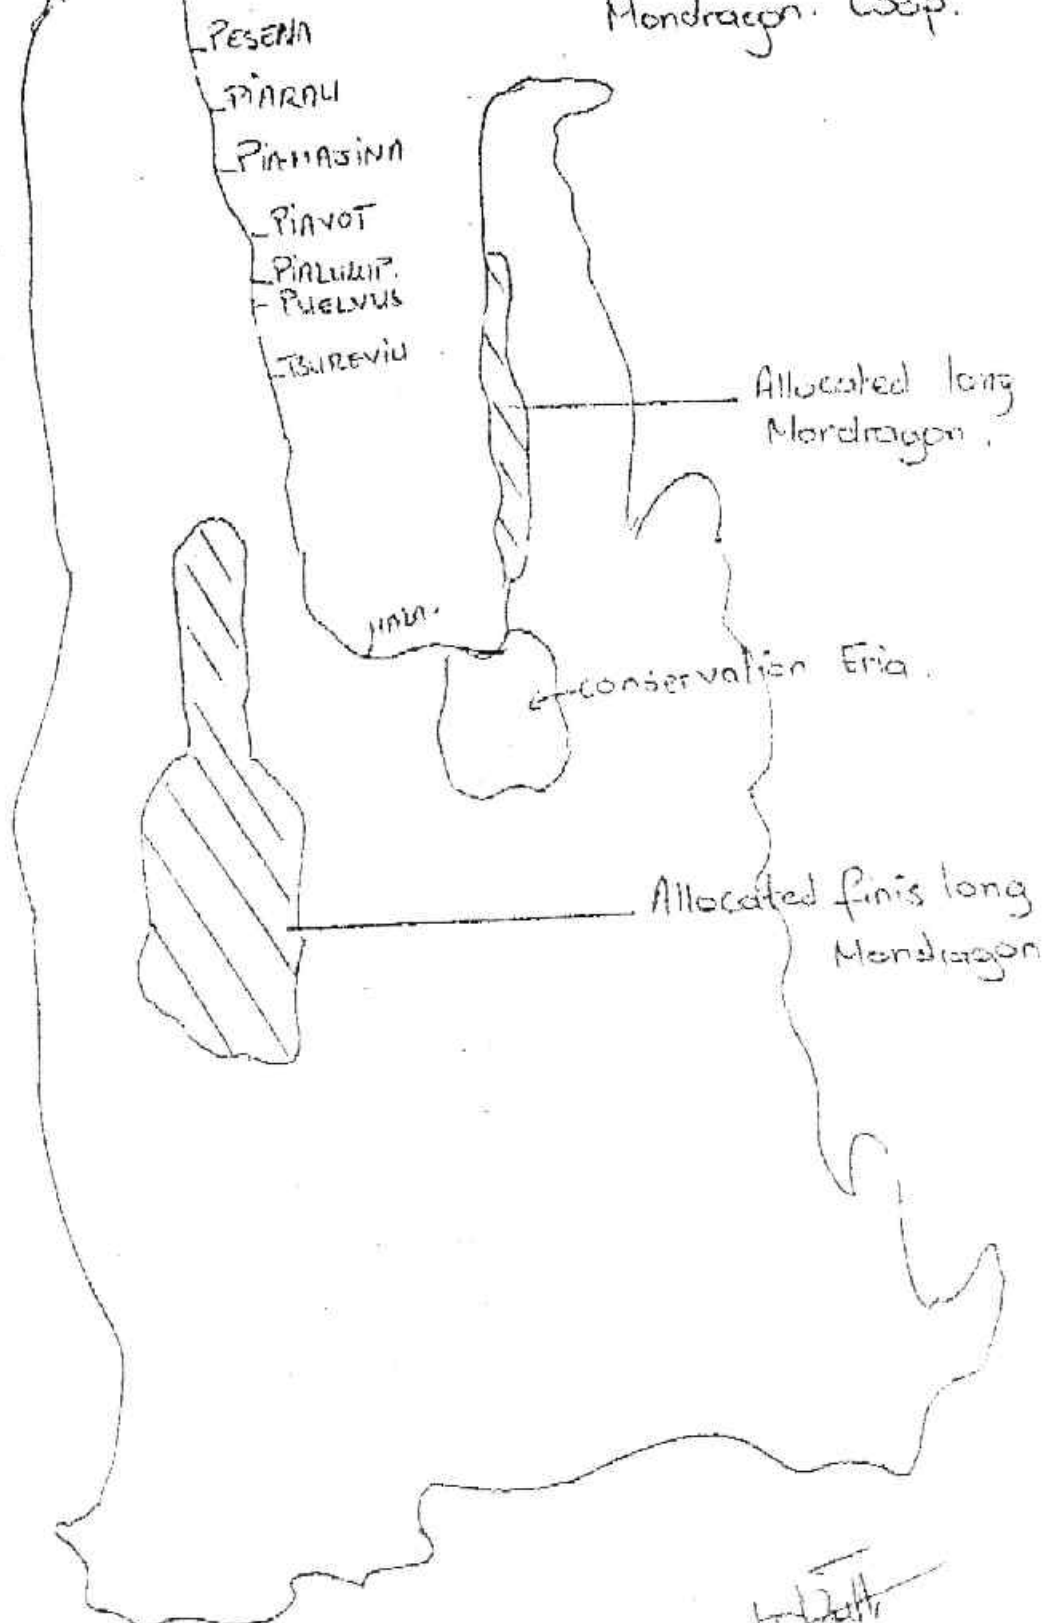 Mondragon. Coop.
PESENA
PIARAU
PIAMASINA
PIAVOT
PUELVUS
TSUREVIU
Allocated long
Mondragon.
conservation Eria.
Allocated finis long
Mondragon